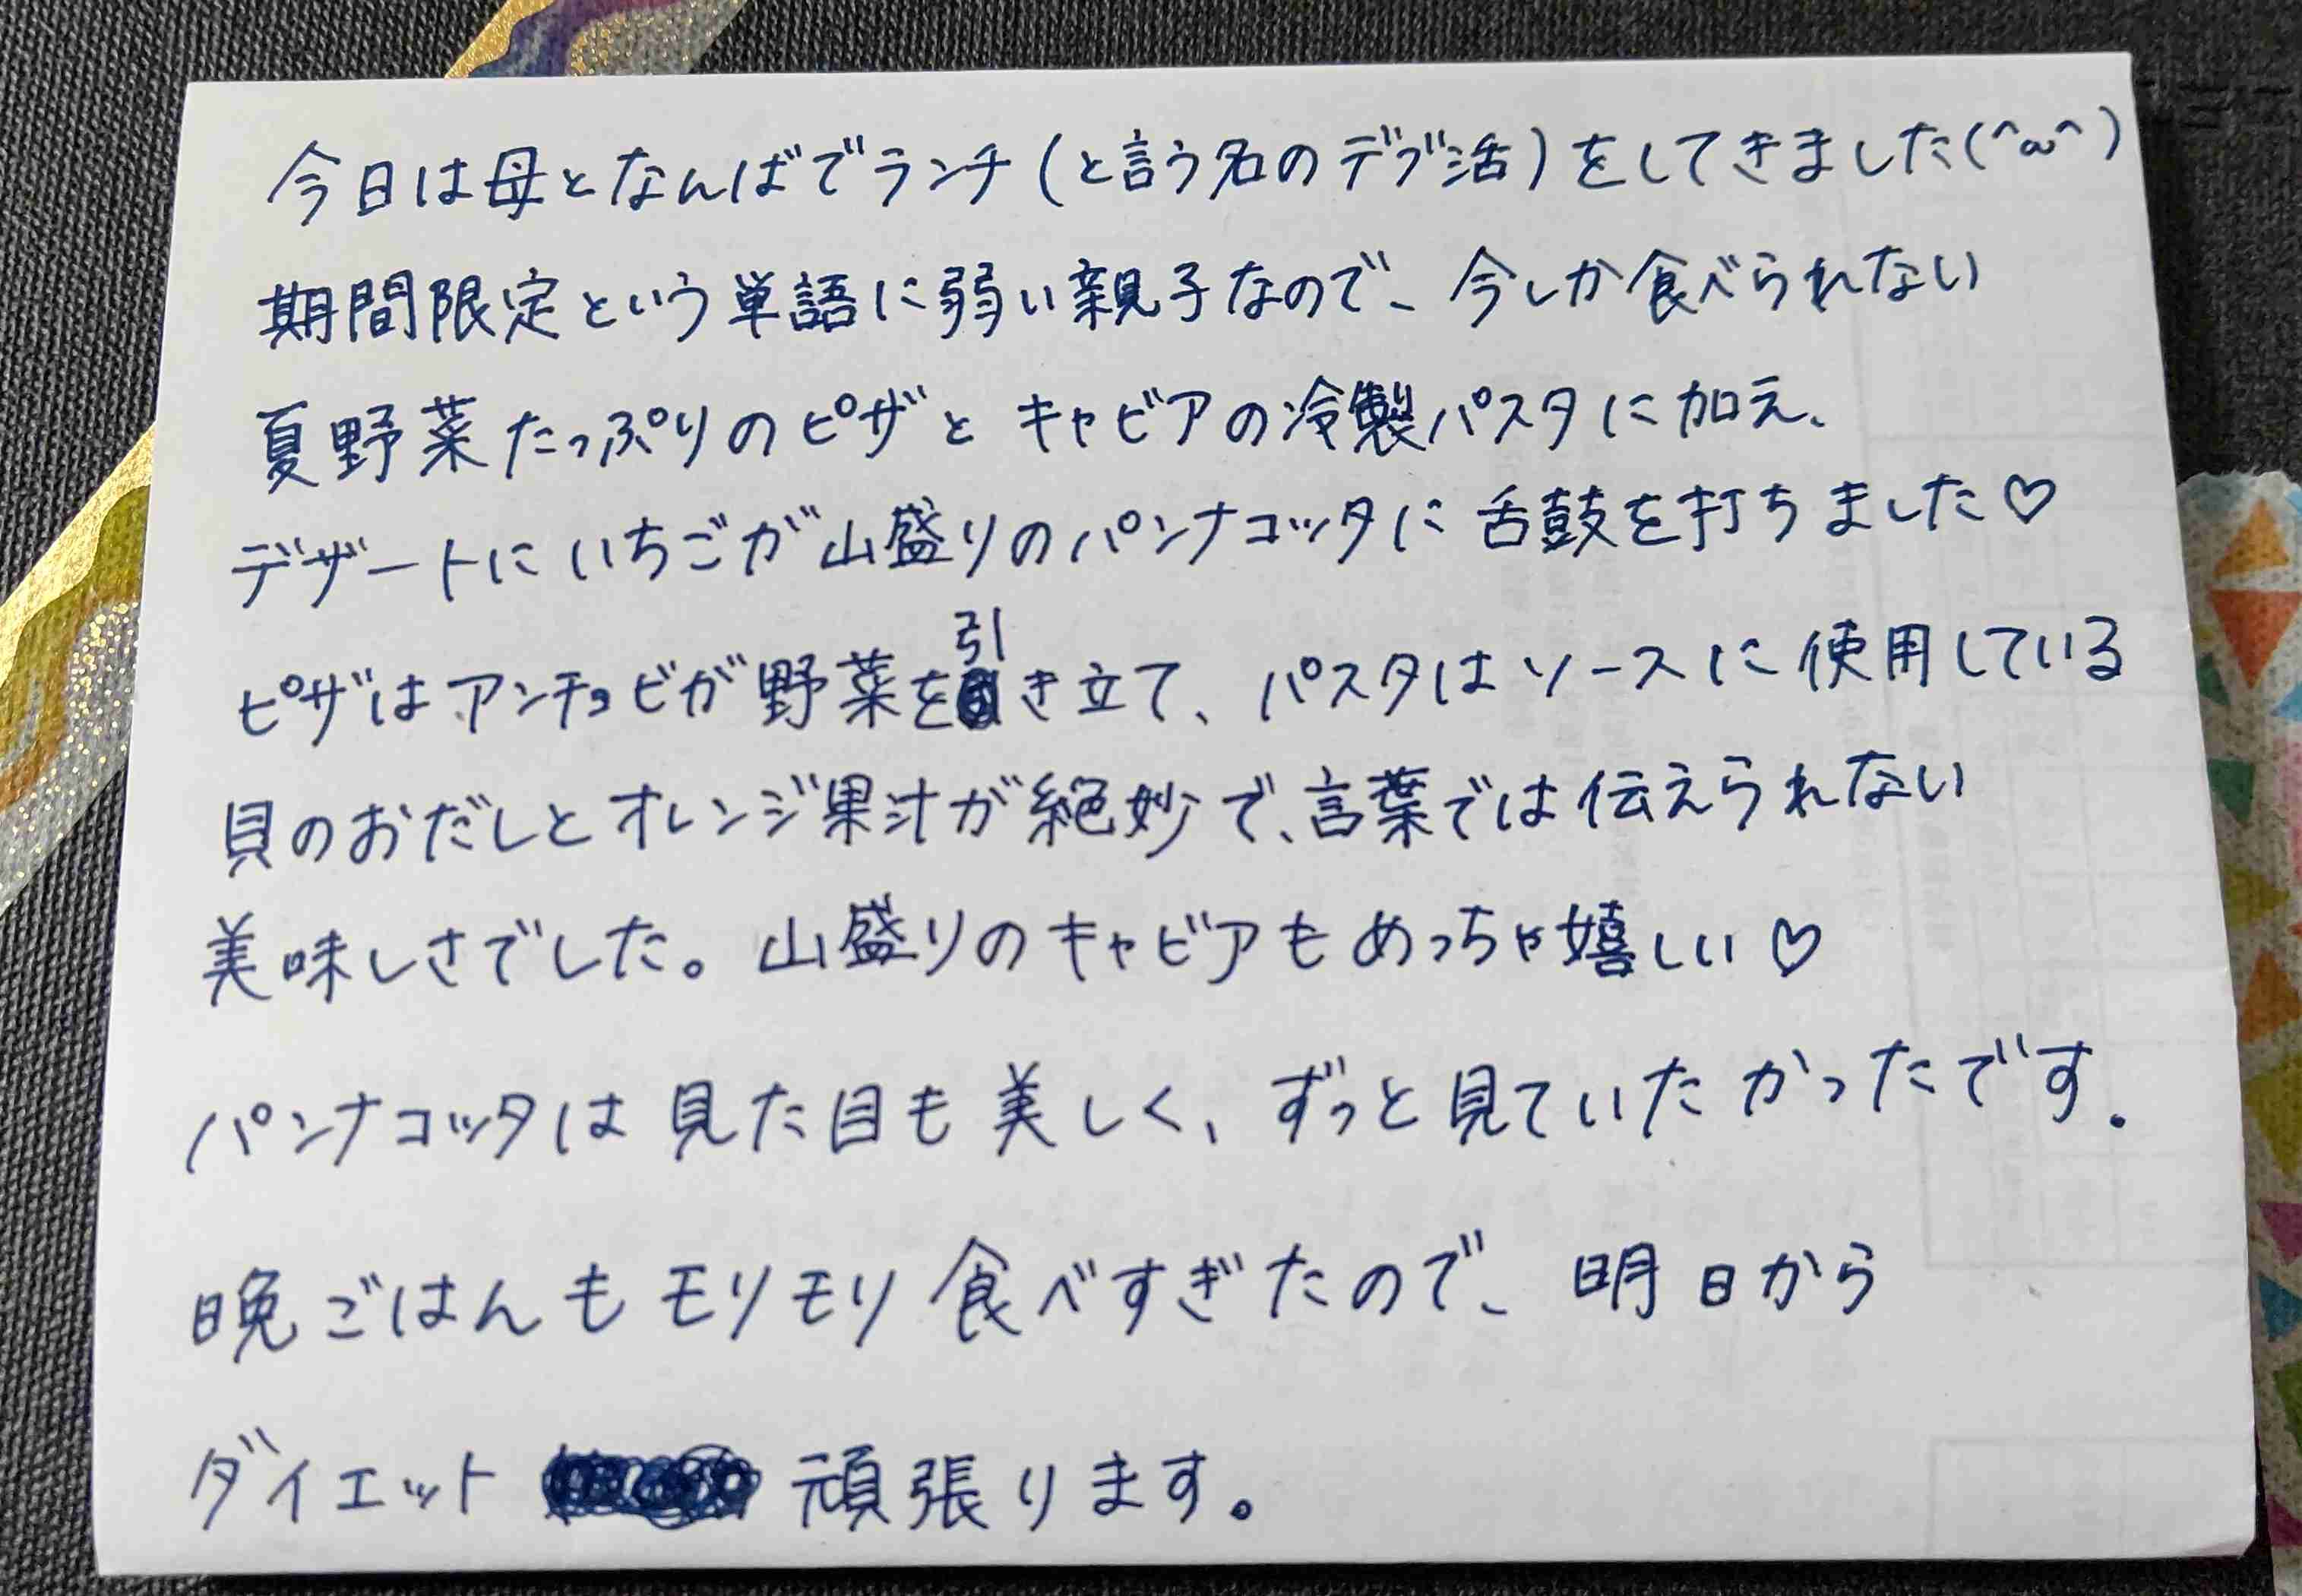 今日は母となんばでランチ(と言う名のデブ活)をしてきました(^ω^)
期間限定という単語に弱い親子なので、今しか食べられない
夏野菜たっぷりのピザとキャビアの冷製パスタに加え、
デザートにいちごが山盛りのパンナコッタに舌鼓を打ちました♡
ピザはアンチョビが野菜を引き立て、パスタはソースに使用している
貝のおだしとオレンジ果汁が絶妙で、言葉では伝えられない
美味しさでした。山盛りのキャビアもめっちゃ嬉しい♡
パンナコッタは見た目も美しく、ずっと見ていたかったです.
晩ごはんもモリモリ食べすぎたので、明日から
ダイエット頑張ります。